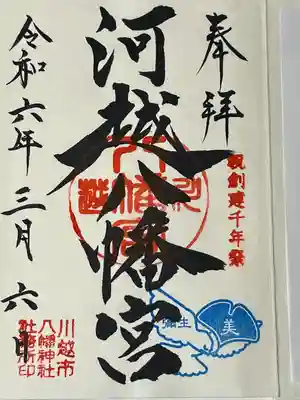 奉拝
祝創建千年祭
河越八幡宮
令和六年三月六日
川越市
八幡神社
社務所印
弥生
美